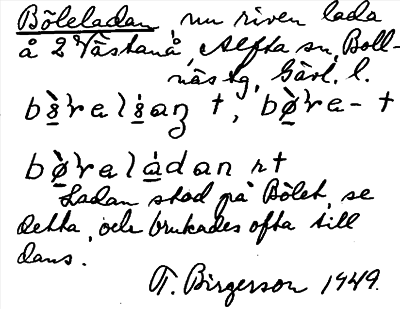 Böleladan, nu riven lada
å 2 Västanå, Alfta sn, Boll-
näs tg, Gävl. l.
t, bø̀ra- t
bø̀raládan nt
Ladan stod på Bölet, se
detta, och brukades ofta till
dans.
T. Birgerson 1949.